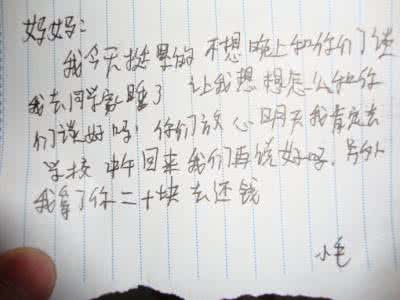 妈妈:
我今天挺累的 不想晚上和你们谈
我去同学家睡了 让我想想怎么和你
们谈好吗, 你们放心明天我肯定去
学校 中午回来我们再谈好吗, 另外
我拿了你二十块去还钱
小毛